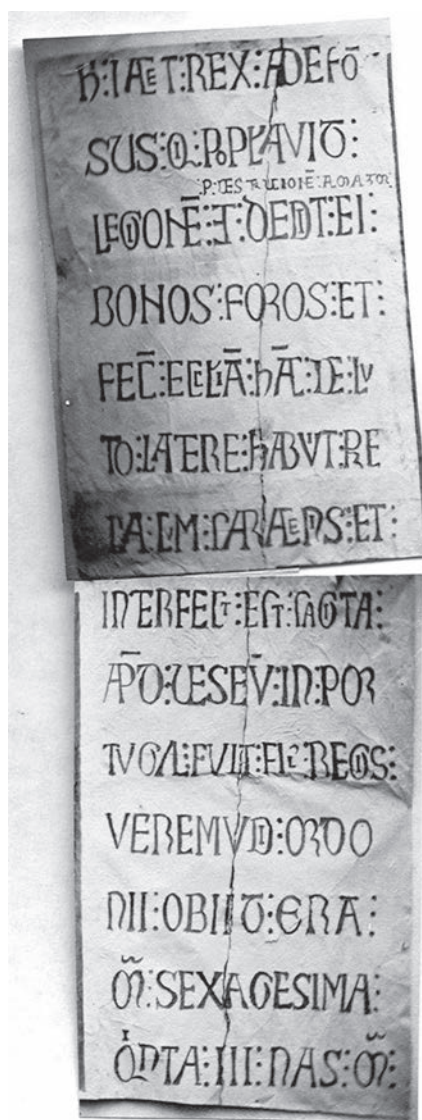 H:IACET:REX:ADEFŌ
SUS:Q:POPLAVIT:
:P:DESTRUCIONĒ:AMAZOR
LEGIONĒ:ET:DEDIT:EI:
BONOS:FOROS:ET:
FEC̄:ECLIĀ:HĀC:DE:LV
TO:LATERE:HABVT:PRE
LIA:CVM:SARACENS:ET:
INTERFECT:EST:SAGITA:
APD̄:VESEV̄:IN:POR
TVGAL:FVIT:FIL:REGIS:
VEREMVDI:ORDO
NII:OBIIT:ERA:
M̃:SEXAGESIMA:
QINTA:III:NAS:M̃: